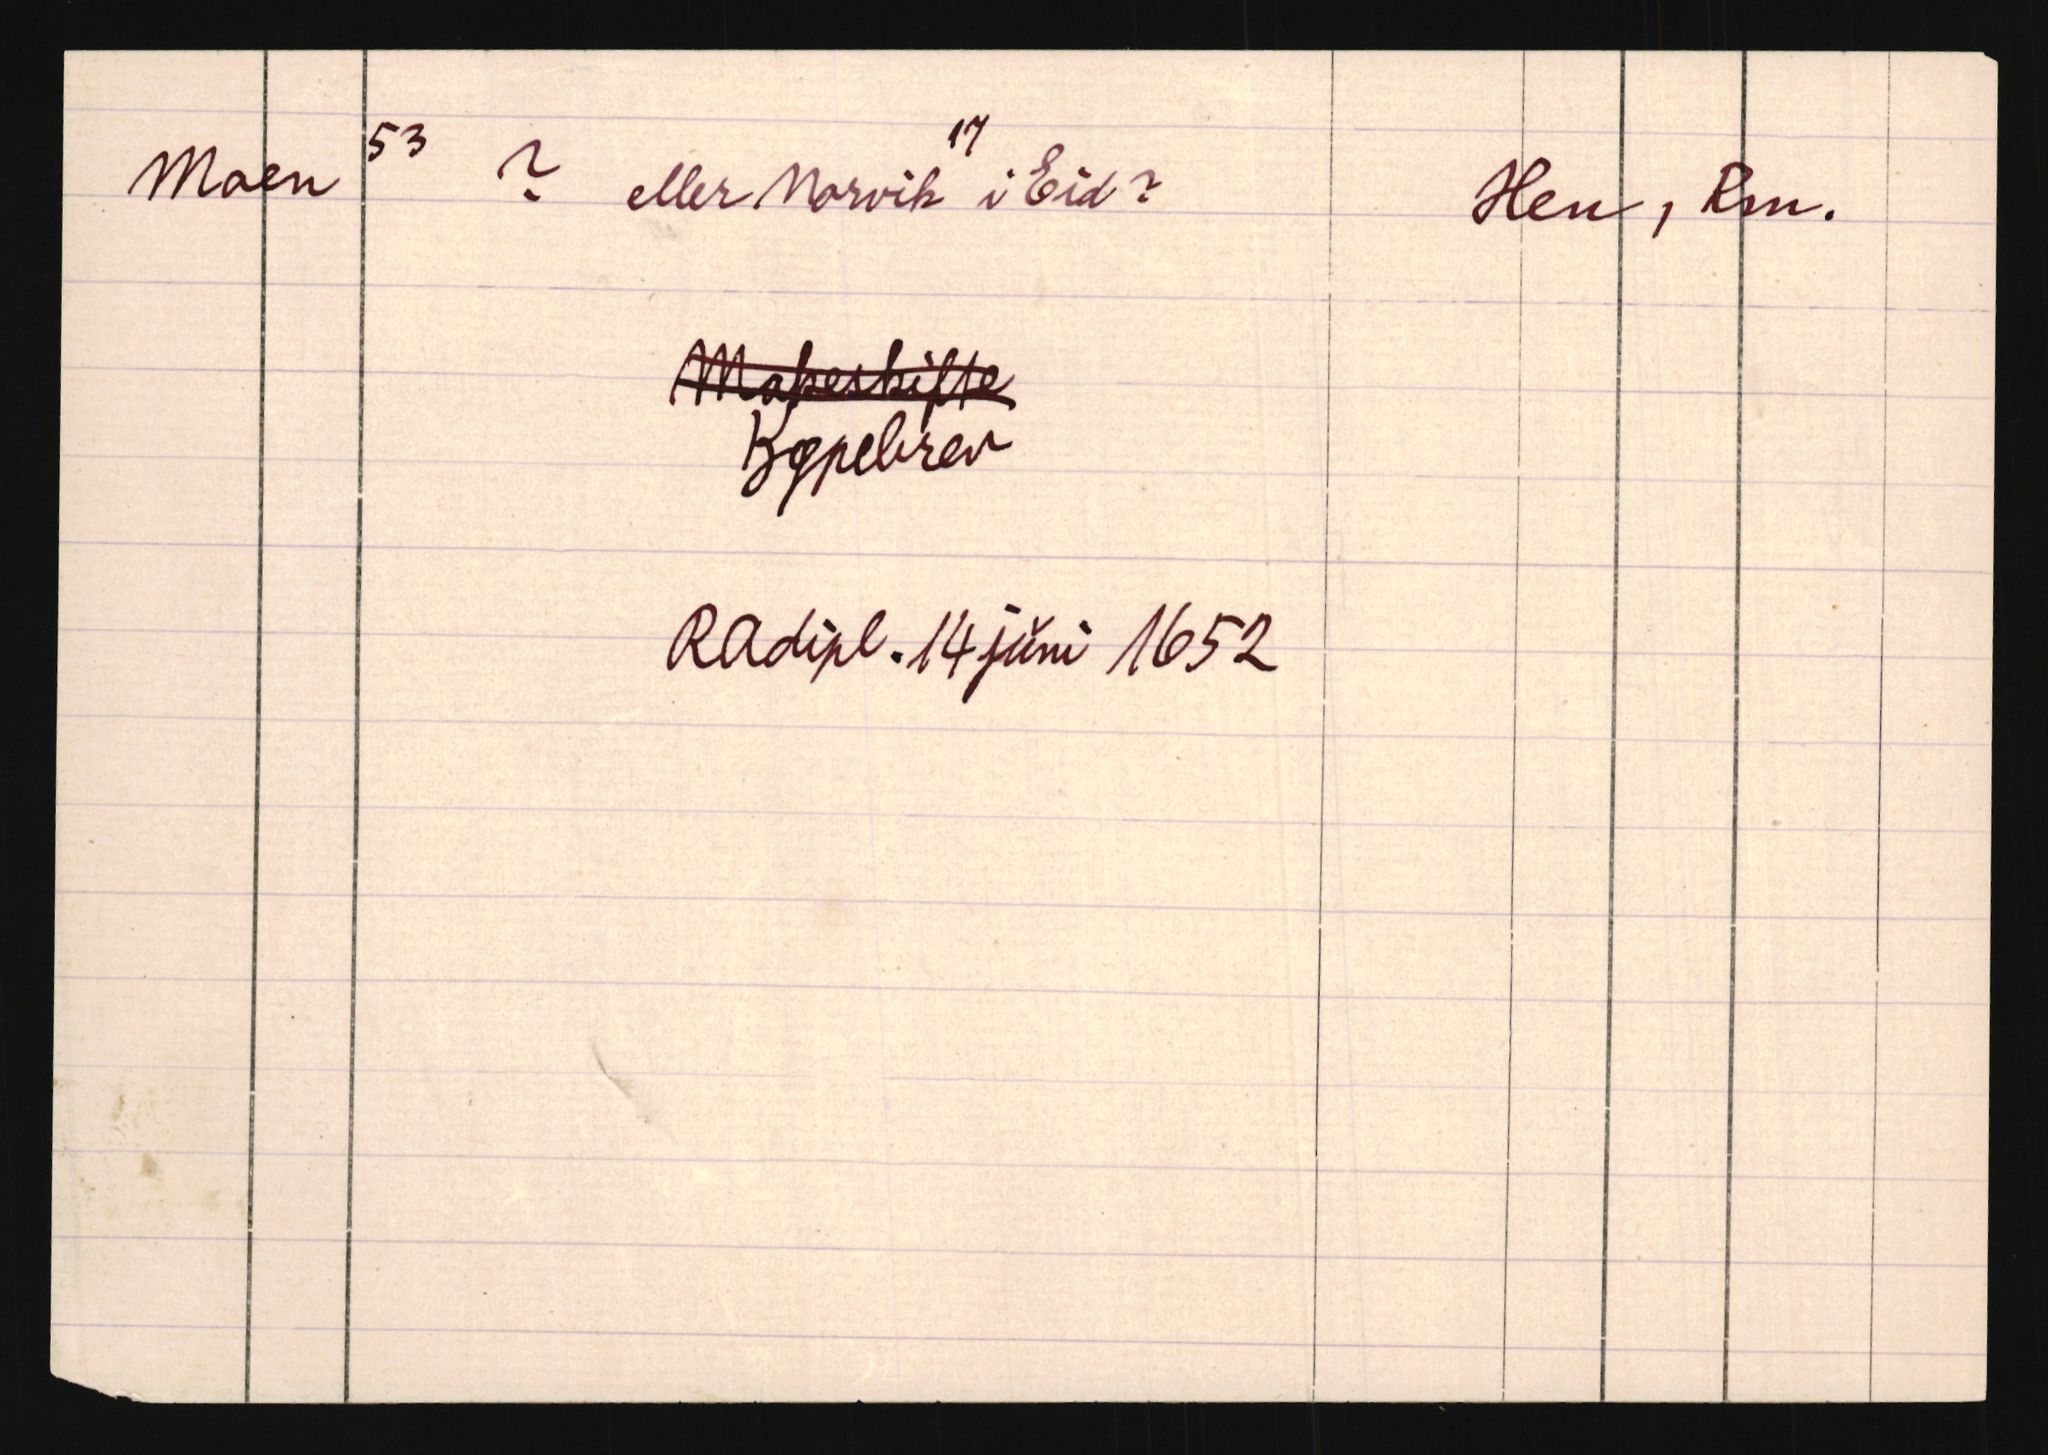 Moen 53 ? eller Norvik 17 i Eid? Hen, Rm.
Makeskifte
Kjøpebrev
RAdipl. 14 juni 1652